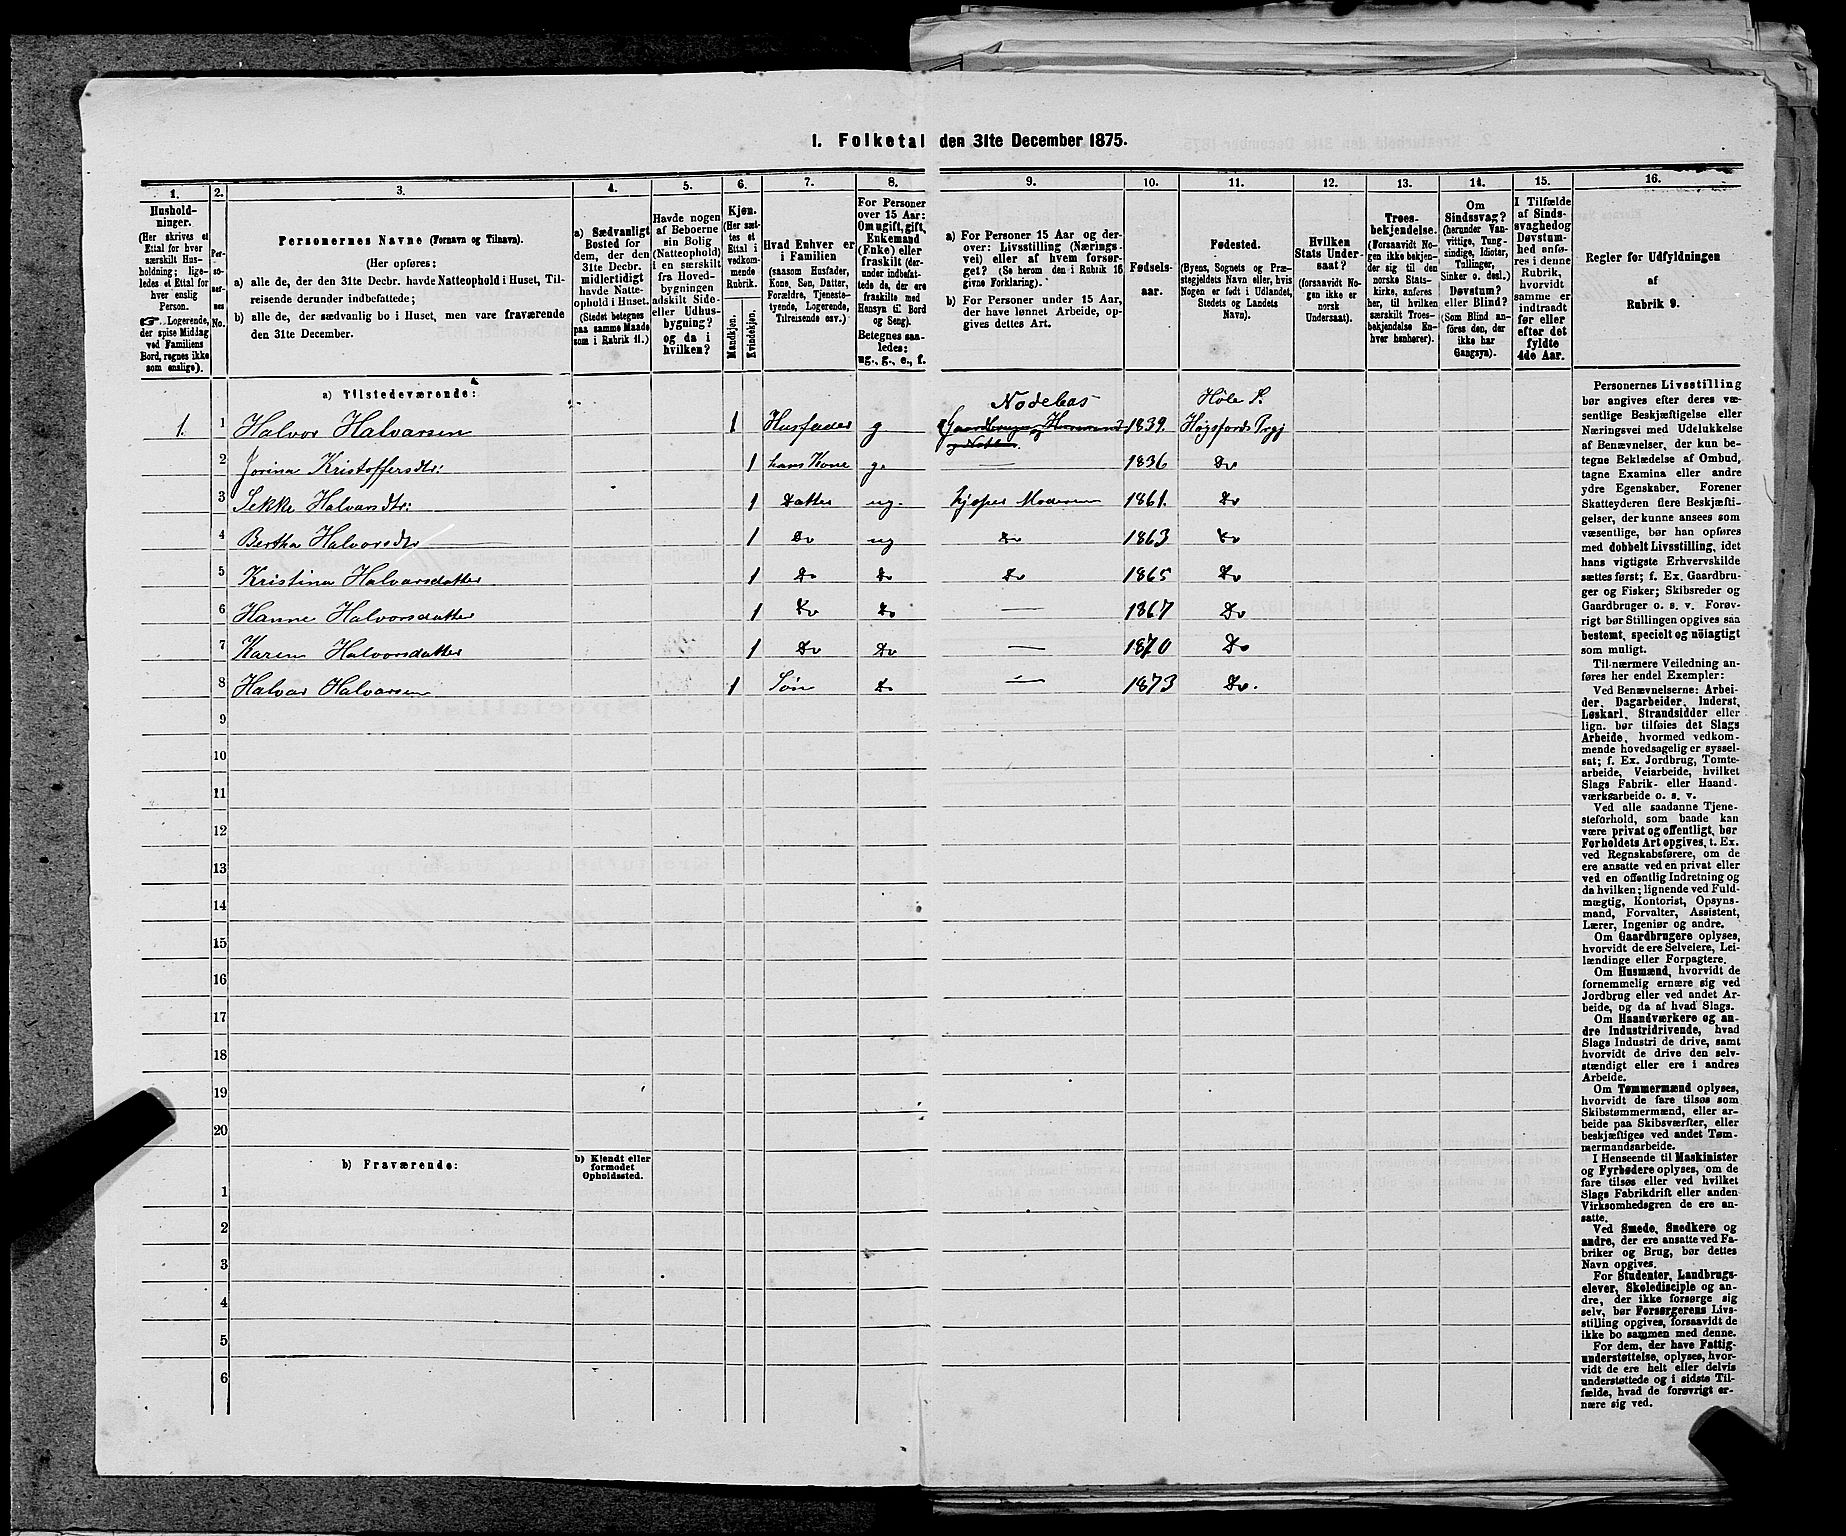 1. Folketal den 31te December 1875.
1. 2. 3. 4. 5. 6. 7. 8. 9. 10. 11. 12. 13. 14. 15. 16.
Hushold-
ninger.
(Her skrives et
Ettal for hver
særskilt Hus-
holdning; lige-
ledes et Ettal for
hver enslig
Person.
☞ Logerende,
der spise Middag
ved Familiens
Bord, regnes ikke
som enslige).
Per-
so-
ner-
nes
No.
Personernes Navne (Fornavn og Tilnavn).
(Her opføres:
a) alle de, der den 31te Decbr. havde Natteophold i Huset, Til-
reisende derunder indbefattede;
b) alle de, der sædvanlig bo i Huset, men vare fraværende
den 31te December.
a) Sædvanligt
Bosted for
dem, der den
31te Decbr.
midlertidigt
havde Natte-
ophold i Huset.
(Stedet betegnes
paa samme Maade
som i Rubrik 11.)
Havde nogen
af Beboerne
sin Bolig
(Natteophold)
i en særskilt
fra Hoved-
bygningen
adskilt Side-
eller Udhus-
bygning?
og da i
hvilken?
Kjøn.
(Her sæt-
tes et
Ettal i
vedkom-
mende
Rubrik.
Mandkjøn.
Kvindekjøn.
Hvad Enhver er
i Familien
(saasom Husfader,
Kone, Søn, Datter,
Forældre, Tjeneste-
tyende, Logerende,
Tilreisende osv.)
For Personer
over 15 Aar:
Om ugift, gift,
Enkemand
(Enke) eller
fraskilt (der-
under indbefat-
tede de, der ere
fraskilte med
Hensyn til Bord
og Seng).
Betegnes saa-
ledes:
ug., g., e., f.
a) For Personer 15 Aar og der-
over: Livsstilling (Nærings-
vei) eller af hvem forsør-
get? (Se herom den i Rubrik 16
givne Forklaring).
b) For Personer under 15 Aar,
der have lønnet Arbeide, op-
gives dettes Art.
Fødsels-
aar.
Fødested.
(Byens, Sognets og Præ-
stegjeldets Navn eller, hvis
Nogen er født i Udlandet,
Stedets og Landets
Navn).
Hvilken
Stats Under-
saat?
(forsaavidt No-
gen ikke er
norsk
Undersaat).
Troes-
bekjendelse.
(Forsaavidt No-
gen ikke bekjen-
der sig til den
norske Stats-
kirke, anføres
her, til hvilken
særskilt Troes-
bekjendelse En-
hver henhører).
Om
Sindssvag?
(herunder Van-
vittige, Tung-
sindige, Idioter,
Tullinger,
Sinker o. desl.)
Døvstum?
eller Blind?
(Som Blind an-
føres den, der
ikke har
Gangsyn).
I Tilfælde
af Sinds-
svaghed og
Døvstum-
hed anfø-
res i denne
Rubrik,
hvorvidt
samme er
indtraadt
før eller
efter det
fyldte
4de Aar.
Regler for Udfyldningen
af
Rubrik 9.
a) Tilstedeværende:
Nodebas Hole S.
1. 1 Halvor Halvorsen 1 Husfader g Gaardbruger 1839. Høgsfjords Prgj
2 Jorina Kristoffersdtr: 1 hans Kone g. — 1836 Do
3 Sekke Halvarsdtr: 1 Datter ug. hjelper Moderen 1861. Do
4 Bertha Halvorsdtr 1 Do ug Do 1863 Do
5 Kristina Halvarsdatter 1 Do Do Do 1865 Do
6 Hanne Halvorsdatter 1 Do Do — 1867 Do
7 Karen Halvorsdatter 1 Do Do — 1870 Do
8 Halvar Halvarsen 1 Søn Do — 1873 Do.
9
10
11
12
13
14
15
16
17
18
19
20
b) Fraværende:
b) Kjendt eller
formodet
Opholdssted.
1
2
3
4
5
6
Personernes Livsstilling
bør angives efter deres væ-
sentlige Beskjæftigelse eller
Næringsvei med Udelukkelse
af Benævnelser, der kun be-
tegne Beklædelse af Ombud,
tagne Examina eller andre
ydre Egenskaber. Forener
Skatteyderen flere Beskjæfti-
gelser, der kunne ansees som
væsentlige, bør han opføres
med dobbelt Livsstilling, idet
hans vigtigste Erhvervskilde
sættes først; f. Ex. Gaardbru-
ger og Fisker; Skibsreder og
Gaardbruger o. s. v. Forøv-
rigt bør Stillingen opgives saa
bestemt, specielt og nöiagtigt
som muligt.
Til nærmere Veiledning an-
føres her endel Exempler:
Ved Benævnelserne: Arbei-
der, Dagarbeider, Inderst,
Løskarl, Strandsidder eller
lign. bør tilføies det Slags
Arbeide, hvormed vedkom-
mende hovedsagelig er syssel-
sat; f. Ex. Jordbrug, Tomte-
arbeide, Veiarbeide, hvilket
Slags Fabrik- eller Haand-
værksarbeide o. s. v.
Ved alle saadanne Tjene-
steforhold, som baade kan
være privat og offentligt, bør
Forholdets Art opgives, t. Ex.
ved Regnskabsførere, om de
ere ansatte ved en privat eller
ved en offentlig Indretning og
da hvilken; lignende ved Fuld-
mægtig, Kontorist, Opsyns-
mand, Forvalter, Assistent,
Lærer, Ingeniør og andre.
Om Gaardbrugere oplyses,
hvorvidt de ere Selveiere, Lei-
lændinge eller Forpagtere.
Om Husmænd, hvorvidt de
fornemmelig ernære sig ved
Jordbrug eller ved andet Ar-
beide, og da af hvad Slags.
Om Haandværkere og an-
dre Industridrivende, hvad
Slags Industri de drive, samt
hvorvidt de drive den selv-
stændigt eller ere i andres
Arbeide.
Om Tømmermænd oplyses,
hvorvidt de fare tilsøs som
Skibstømmermænd, eller ar-
beide paa Skibsværfter, eller
beskjæftiges ved andet Tøm-
mermandsarbeide.
I Henseende til Maskinister
og Fyrbødere oplyses, om de
fare tilsøs eller ved hvilket
Slags Fabrikdrift eller anden
Virksomhedsgren de ere an-
satte.
Ved Smede, Snedkere og
andre, der ere ansatte ved Fa-
briker og Brug, bør dettes
Navn opgives.
For Studenter, Landbrugs-
elever, Skoledisciple og an-
dre, der ikke forsørge sig
selv, bør Forsørgerens Livs-
stilling opgives, forsaavidt de
ikke bo sammen med denne.
For dem, der have Fattig-
understøttelse, oplyses, hvor-
vidt de ere helt eller delvis
understøttede og i sidste Til-
fælde, hvad de forøvrigt er-
nære sig ved.